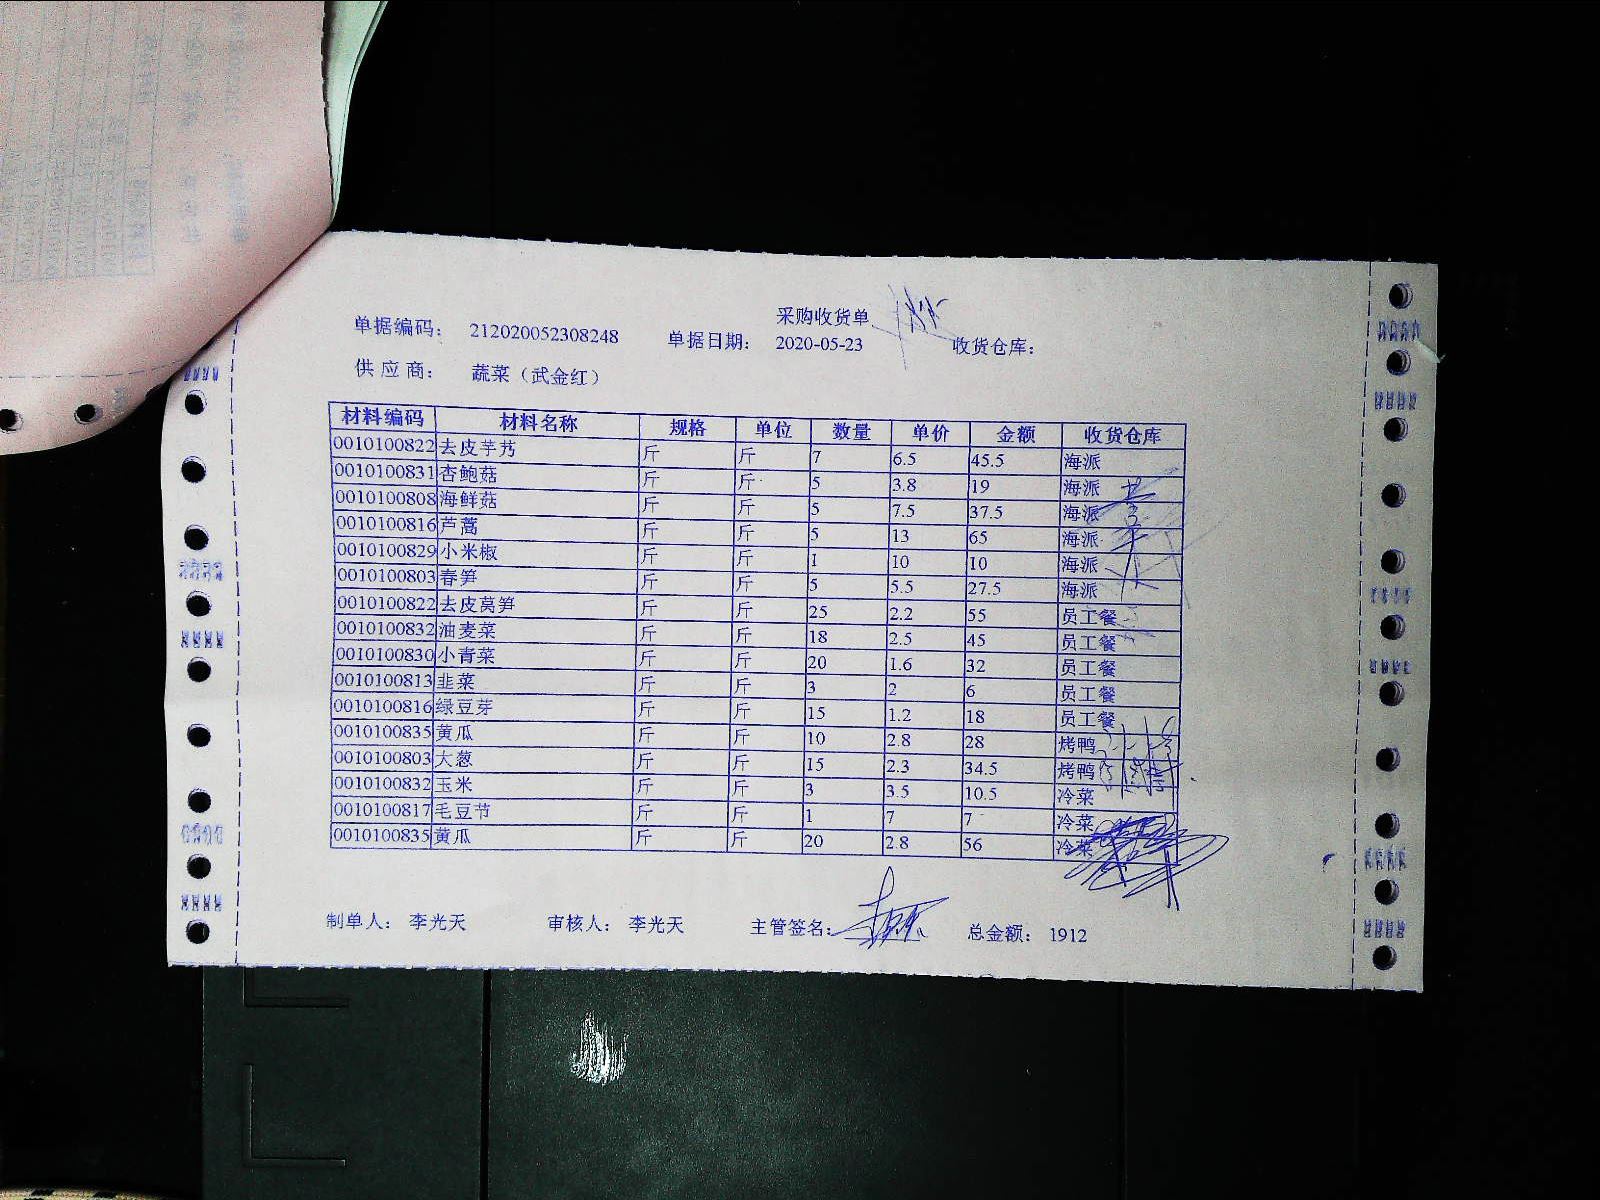 采购收货单
单据编码： 212020052308248 单据日期： 2020-05-23 收货仓库：
供 应 商： 蔬菜（武金红）
材料编码 材料名称 规格 单位 数量 单价 金额 收货仓库
0010100822 去皮芋艿 斤 斤 7 6.5 45.5 海派
0010100831 杏鲍菇 斤 斤 5 3.8 19 海派
0010100808 海鲜菇 斤 斤 5 7.5 37.5 海派
0010100816 芦蒿 斤 斤 5 13 65 海派
0010100829 小米椒 斤 斤 1 10 10 海派
0010100803 春笋 斤 斤 5 5.5 27.5 海派
0010100822 去皮莴笋 斤 斤 25 2.2 55 员工餐
0010100832 油麦菜 斤 斤 18 2.5 45 员工餐
0010100830 小青菜 斤 斤 20 1.6 32 员工餐
0010100813 韭菜 斤 斤 3 2 6 员工餐
0010100816 绿豆芽 斤 斤 15 1.2 18 员工餐
0010100835 黄瓜 斤 斤 10 2.8 28 烤鸭
0010100803 大葱 斤 斤 15 2.3 34.5 烤鸭
0010100832 玉米 斤 斤 3 3.5 10.5 冷菜
0010100817 毛豆节 斤 斤 1 7 7 冷菜
0010100835 黄瓜 斤 斤 20 2.8 56 冷菜
制单人： 李光天 审核人： 李光天 主管签名： 总金额： 1912